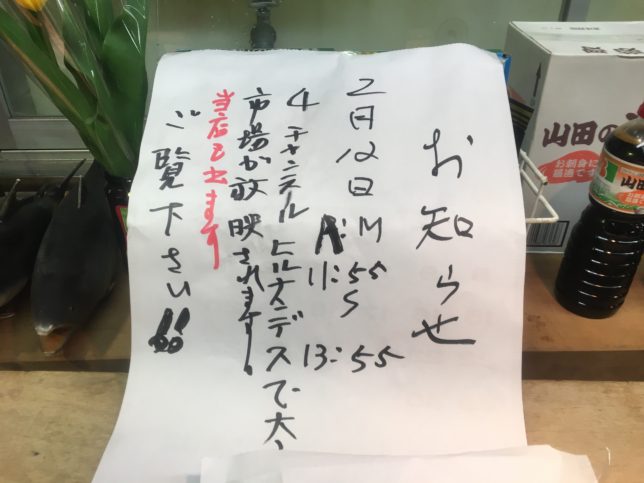 お知らせ
2月12日 A:M 11:55 S 13:55
4チャンネルヒルナンデスで大
市場が放映されます!
当店も出ます
ご覧下さい!!
山田の
お刺身に
最適です
山田